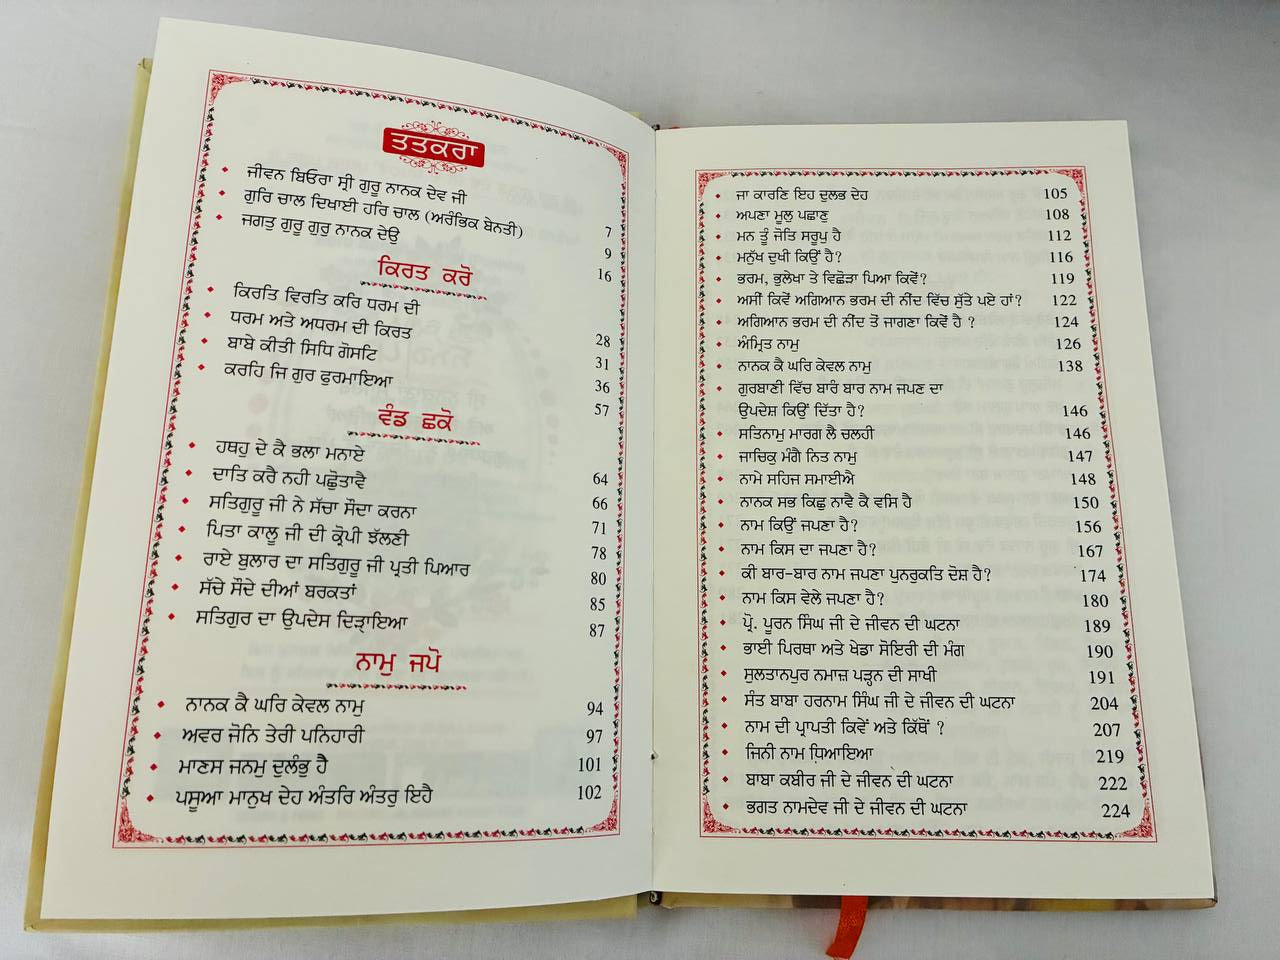 ਤਤਕਰਾ
ਜੀਵਨ ਬਿਓਰਾ ਸ੍ਰੀ ਗੁਰੂ ਨਾਨਕ ਦੇਵ ਜੀ 7
ਗੁਰਿ ਚਾਲ ਦਿਖਾਈ ਹਰਿ ਚਾਲ (ਅਰੰਭਿਕ ਬੇਨਤੀ) 9
ਜਗਤੁ ਗੁਰੂ ਗੁਰੁ ਨਾਨਕ ਦੇਉ 16
ਕਿਰਤ ਕਰੋ
ਕਿਰਤਿ ਵਿਰਤਿ ਕਰਿ ਧਰਮ ਦੀ 28
ਧਰਮ ਅਤੇ ਅਧਰਮ ਦੀ ਕਿਰਤ 31
ਬਾਬੇ ਕੀਤੀ ਸਿਧਿ ਗੋਸਟਿ 36
ਕਰਹਿ ਜਿ ਗੁਰ ਫੁਰਮਾਇਆ 57
ਵੰਡ ਛਕੋ
ਹਥਹੁ ਦੇ ਕੈ ਭਲਾ ਮਨਾਏ 64
ਦਾਤਿ ਕਰੈ ਨਹੀ ਪਛੁੋਤਾਵੈ 66
ਸਤਿਗੁਰੂ ਜੀ ਨੇ ਸੱਚਾ ਸੌਦਾ ਕਰਨਾ 71
ਪਿਤਾ ਕਾਲੂ ਜੀ ਦੀ ਕ੍ਰੋਪੀ ਝੱਲਣੀ 78
ਰਾਏ ਬੁਲਾਰ ਦਾ ਸਤਿਗੁਰੂ ਜੀ ਪ੍ਰਤੀ ਪਿਆਰ 80
ਸੱਚੇ ਸੌਦੇ ਦੀਆਂ ਬਰਕਤਾਂ 85
ਸਤਿਗੁਰ ਦਾ ਉਪਦੇਸ ਦਿੜ੍ਹਾਇਆ 87
ਨਾਮੁ ਜਪੋ
ਨਾਨਕ ਕੈ ਘਰਿ ਕੇਵਲ ਨਾਮੁ 94
ਅਵਰ ਜੋਨਿ ਤੇਰੀ ਪਨਿਹਾਰੀ 97
ਮਾਣਸ ਜਨਮੁ ਦੁਲੰਭੁ ਹੈ 101
ਪਸੂਆ ਮਾਨੁਖ ਦੇਹ ਅੰਤਰਿ ਅੰਤਰੁ ਇਹੈ 102
ਜਾ ਕਾਰਣਿ ਇਹ ਦੁਲਭ ਦੇਹ 105
ਅਪਣਾ ਮੂਲੁ ਪਛਾਣੁ 108
ਮਨ ਤੂੰ ਜੋਤਿ ਸਰੂਪੁ ਹੈ 112
ਮਨੁੱਖ ਦੁਖੀ ਕਿਉਂ ਹੈ? 116
ਭਰਮ, ਭੁਲੇਖਾ ਤੇ ਵਿਛੋੜਾ ਪਿਆ ਕਿਵੇਂ? 119
ਅਸੀਂ ਕਿਵੇਂ ਅਗਿਆਨ ਭਰਮ ਦੀ ਨੀਂਦ ਵਿੱਚ ਸੁੱਤੇ ਪਏ ਹਾਂ? 122
ਅਗਿਆਨ ਭਰਮ ਦੀ ਨੀਂਦ ਤੋਂ ਜਾਗਣਾ ਕਿਵੇਂ ਹੈ ? 124
ਅੰਮ੍ਰਿਤ ਨਾਮੁ 126
ਨਾਨਕ ਕੈ ਘਰਿ ਕੇਵਲ ਨਾਮੁ 138
ਗੁਰਬਾਣੀ ਵਿੱਚ ਬਾਰੰ ਬਾਰ ਨਾਮ ਜਪਣ ਦਾ
ਉਪਦੇਸ਼ ਕਿਉਂ ਦਿੱਤਾ ਹੈ? 146
ਸਤਿਨਾਮੁ ਮਾਰਗ ਲੈ ਚਲਹੀ 146
ਜਾਚਿਕੁ ਮੰਗੈ ਨਿਤ ਨਾਮੁ 147
ਨਾਮੇ ਸਹਿਜ ਸਮਾਈਐ 148
ਨਾਨਕ ਸਭ ਕਿਛੁ ਨਾਵੈ ਕੈ ਵਸਿ ਹੈ 150
ਨਾਮ ਕਿਉਂ ਜਪਣਾ ਹੈ? 156
ਨਾਮ ਕਿਸ ਦਾ ਜਪਣਾ ਹੈ? 167
ਕੀ ਬਾਰ-ਬਾਰ ਨਾਮ ਜਪਣਾ ਪੁਨਰੁਕਤਿ ਦੋਸ਼ ਹੈ? 174
ਨਾਮ ਕਿਸ ਵੇਲੇ ਜਪਣਾ ਹੈ? 180
ਪ੍ਰੋ. ਪੂਰਨ ਸਿੰਘ ਜੀ ਦੇ ਜੀਵਨ ਦੀ ਘਟਨਾ 189
ਭਾਈ ਪਿਰਥਾ ਅਤੇ ਖੇਡਾ ਸੋਇਰੀ ਦੀ ਮੰਗ 190
ਸੁਲਤਾਨਪੁਰ ਨਮਾਜ਼ ਪੜ੍ਹਨ ਦੀ ਸਾਖੀ 191
ਸੰਤ ਬਾਬਾ ਹਰਨਾਮ ਸਿੰਘ ਜੀ ਦੇ ਜੀਵਨ ਦੀ ਘਟਨਾ 204
ਨਾਮ ਦੀ ਪ੍ਰਾਪਤੀ ਕਿਵੇਂ ਅਤੇ ਕਿੱਥੋਂ ? 207
ਜਿਨੀ ਨਾਮ ਧਿਆਇਆ 219
ਬਾਬਾ ਕਬੀਰ ਜੀ ਦੇ ਜੀਵਨ ਦੀ ਘਟਨਾ 222
ਭਗਤ ਨਾਮਦੇਵ ਜੀ ਦੇ ਜੀਵਨ ਦੀ ਘਟਨਾ 224